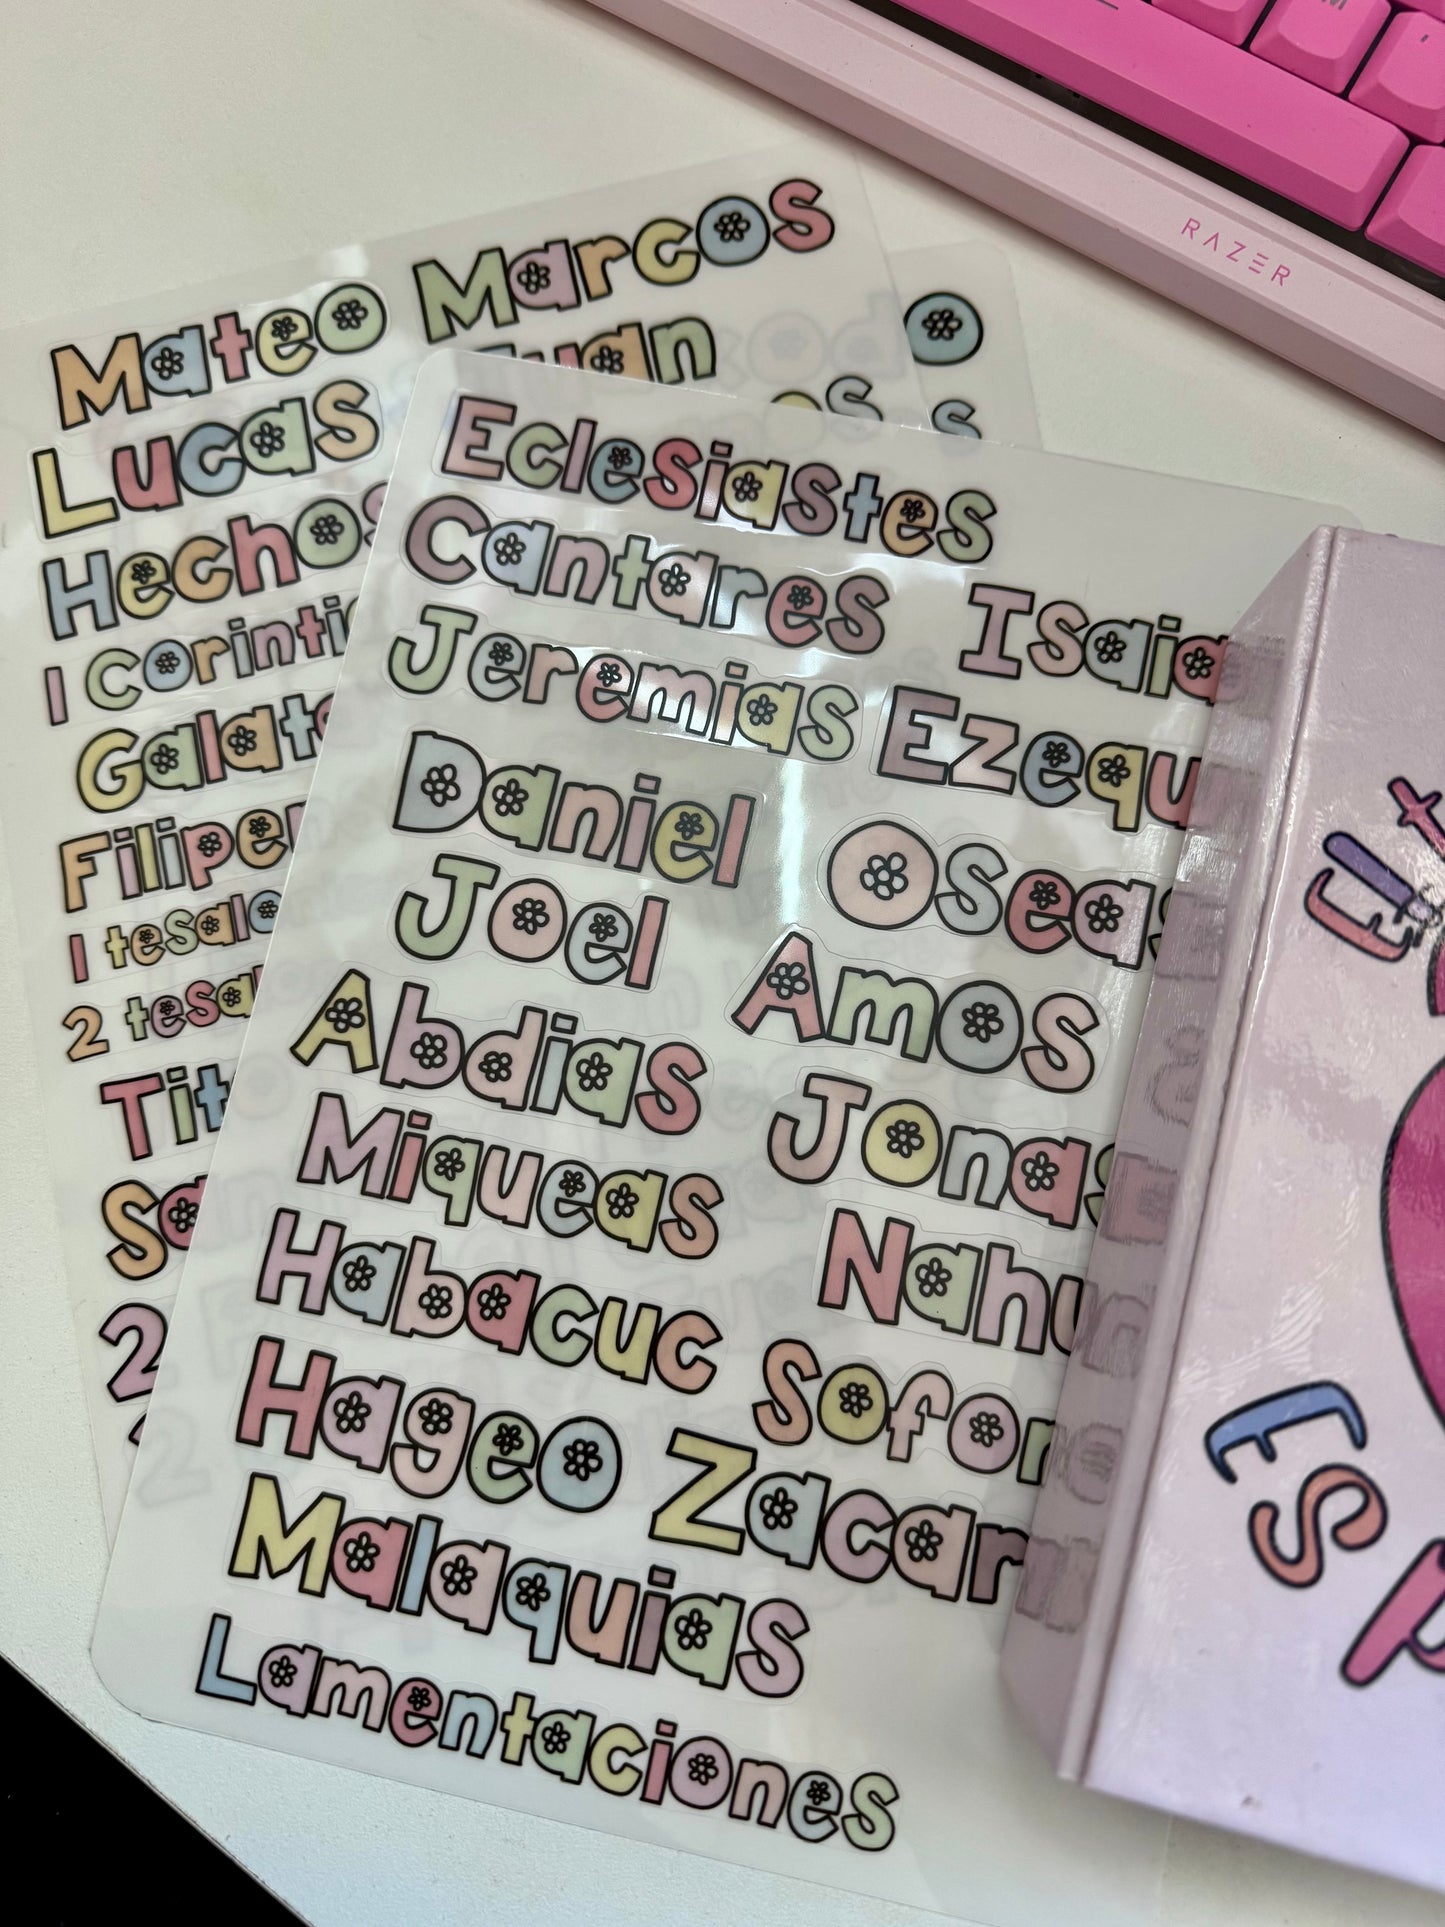 RAZER
Mateo Marcos
Lucas
Hechos
1 corinti
Galat
Filipe
1 tesalo
2 tesal
Tit
Sa
2
Eclesiastes
Cantares Isaia
Jeremias Ezequ
Daniel Oseas
Joel Amos
Abdias Jonas
Miqueas Nahu
Habacuc Sofon
Hageo Zacar
Malaquias
Lamentaciones
El
ESP